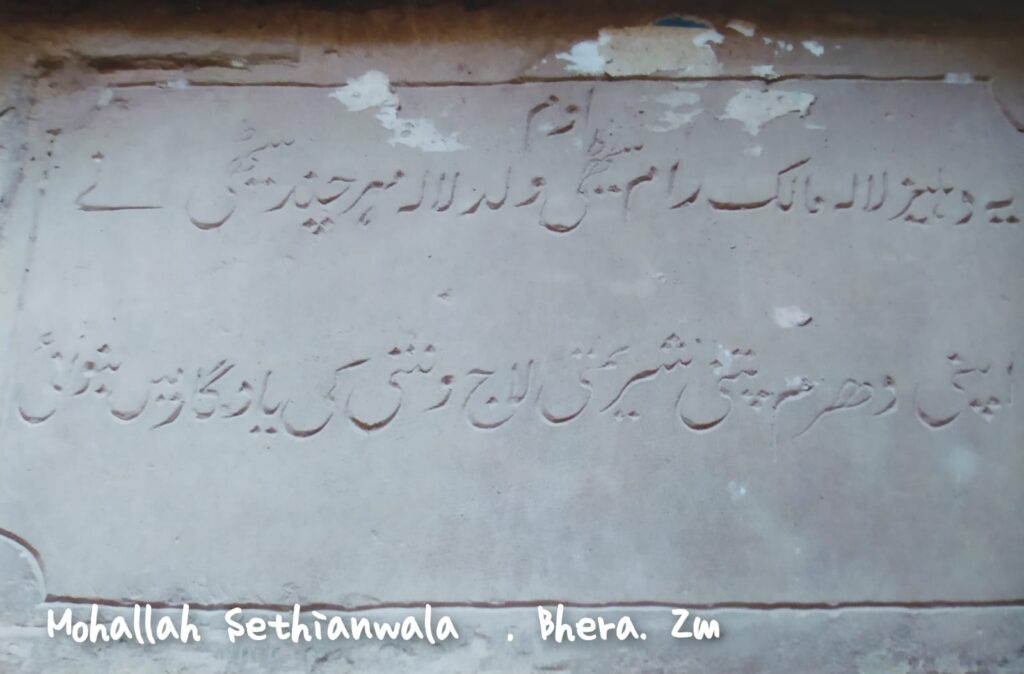 اوم
یہ دہلیز لالہ مالک رام سیٹھی ولد لالہ مہر چند سیٹھی نے
اپنی دھرم پتنی شریمتی لاج ونتی کی یادگار میں بنوائی
Mohallah Sethianwala . Bhera. Zm